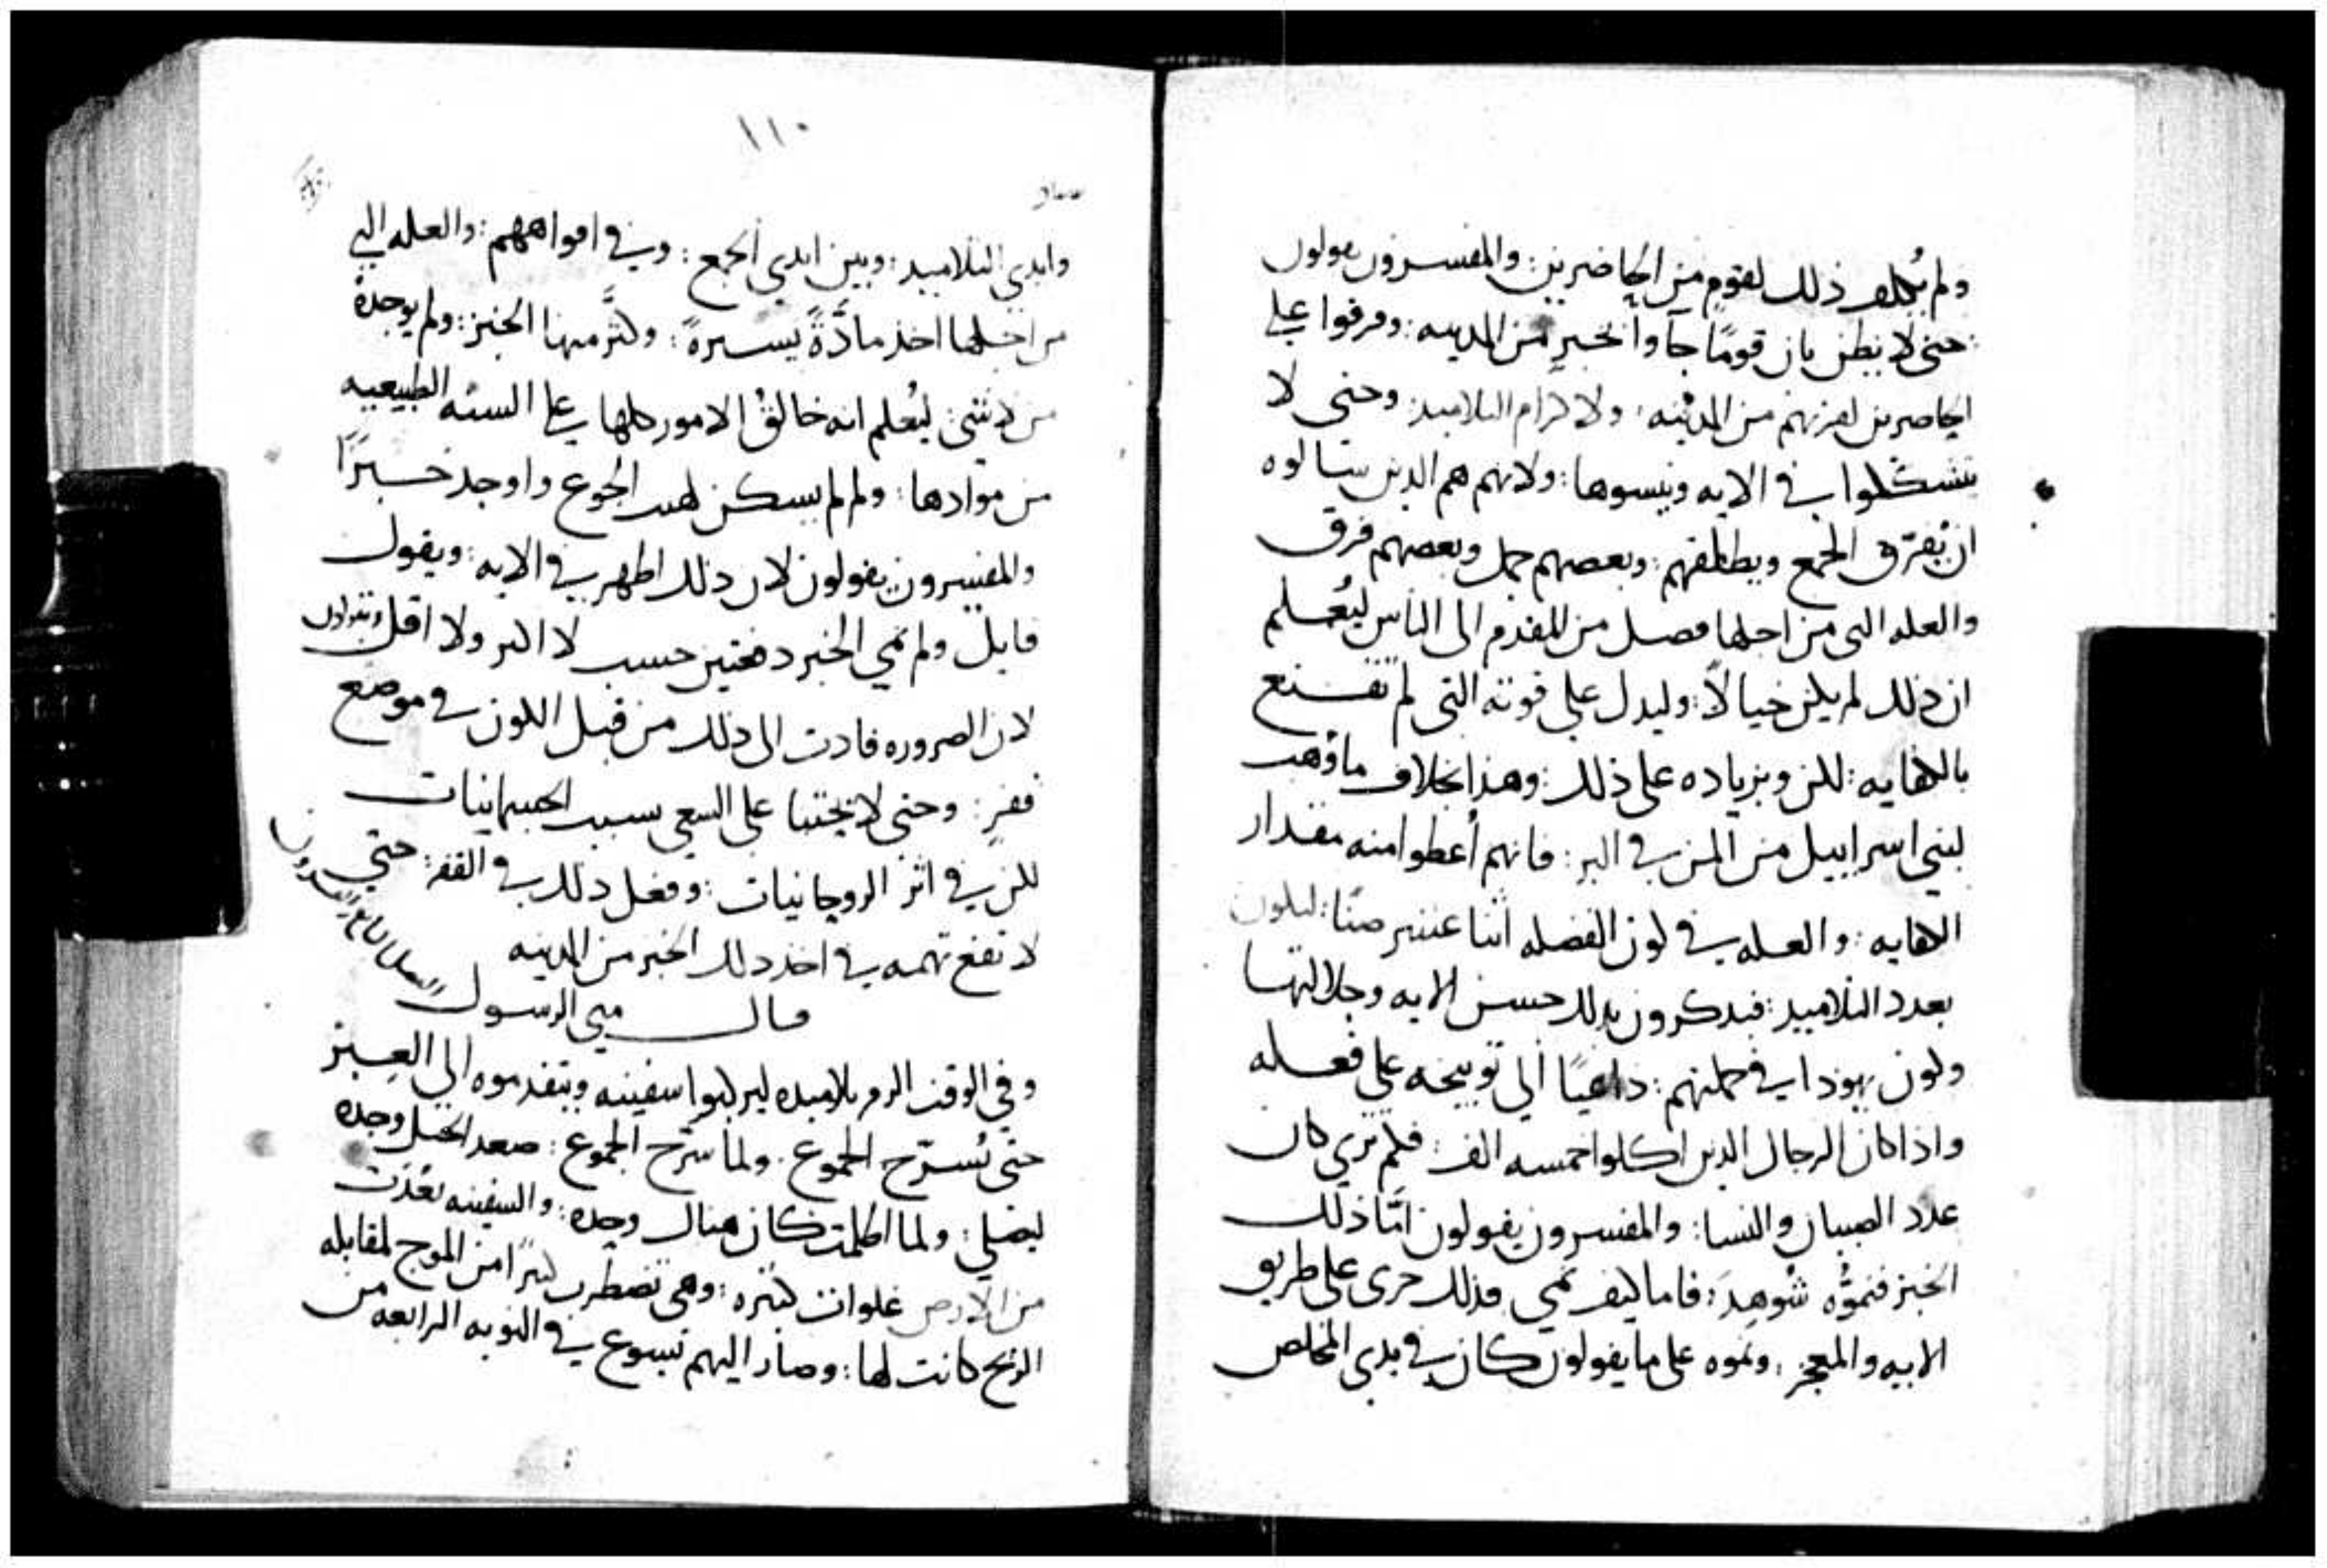 ولم يُكلف ذلك لقومٍ من الحاضرين: والمفسرون يقولون
حتى لا يظن بان قومًا جاوا بخبزٍ من المدينه: وفرقوا على
الحاضرين لقربهم من المدينه: ولاكرام التلاميد: وحتى لا
يتشككوا في الايه وينسوها: ولانهم هم الدين سالوه
ان يُفرّق الجمع ويطلقهم: وبعضهم حمل وبعضهم فرق
والعله التى من اجلها فصل من المقدم الى الناس ليُعلم
ان ذلك لم يكن خيالاً: وليدل على قوته التى لم تقنع
بالكفايه: لكن وبزياده على ذلك: وهذا بخلاف ما وُهب
لبني اسراييل من المن في البر: فانهم أُعطوا منه مقدار
الكفايه: والعله في كون الفضله اثنا عشر صنًا: ليكون
بعدد التلاميد: فيدكرون بدلك حسن الايه وجلالتها
وكون يهودا في جملتهم: داعيًا الى توبيخه على فعله
واذا كان الرجال الدين اكلوا خمسه الف: فلم ترى كان
عدد الصبيان والنسا: والمفسرون يقولون امّا ذلك
الخبز فنموُّه شُوهِدَ: فاما كيف نمي فذلك جرى على طريق
الايه والمعجز: ونموه على ما يقولون كان في يدى المخلص
١١٠
وايدى التلاميد: وبين ايدى الجمع: وفي افواههم: والعله التي
من اجلها اخذ مادَّةً يسيرةً: وكثَّر منها الخبز: ولم يوجده
من لا شي: ليُعلم انه خالقُ الامور كلها على السنه الطبيعيه
من موادها: ولم لم يسكن لهب الجوع واوجد خبزًا
والمفسرون يقولون لان دلك اظهر في الايه: ويقول
قايل ولم نمي الخبز دفعتين حسب لا اكثر ولا اقل ويقولون
لان الضروره قادت الى دلك من قبل الكون في موضع
قفرٍ: وحتى لا يحثنا على السعي بسبب الجسمانيات
لكن في اثر الروحانيات: وفعل دلك في القفر: حتى
لا تقع تهمه في اخذ دلك الخبز من المدينه
قال متى الرسول
وفي الوقت الزم تلاميده ليركبوا سفينه ويتقدموه الى العبر
حتى يُسرّح الجموع. ولما سرّح الجموع: صعد الجبل وحده
ليصلي: ولما اظلمت كان هناك وحده: والسفينه بعُدت
من الارض غلوات كثيره: وهي تضطرب كثيرًا من الموج لمقابله
الريح كانت لها: وصار اليهم يسوع في النوبه الرابعه من